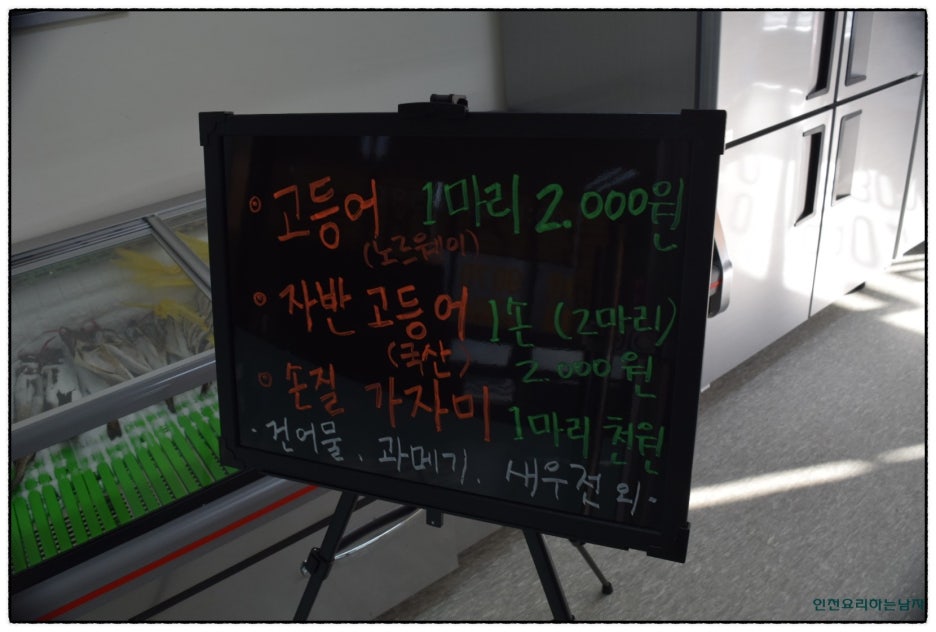 고등어 1마리 2.000원
(노르웨이)
자반고등어 1손 (2마리)
(국산) 2.000원
손질 가자미 1마리 천원
· 건어물. 과메기. 새우전 외.
인천요리하는남자